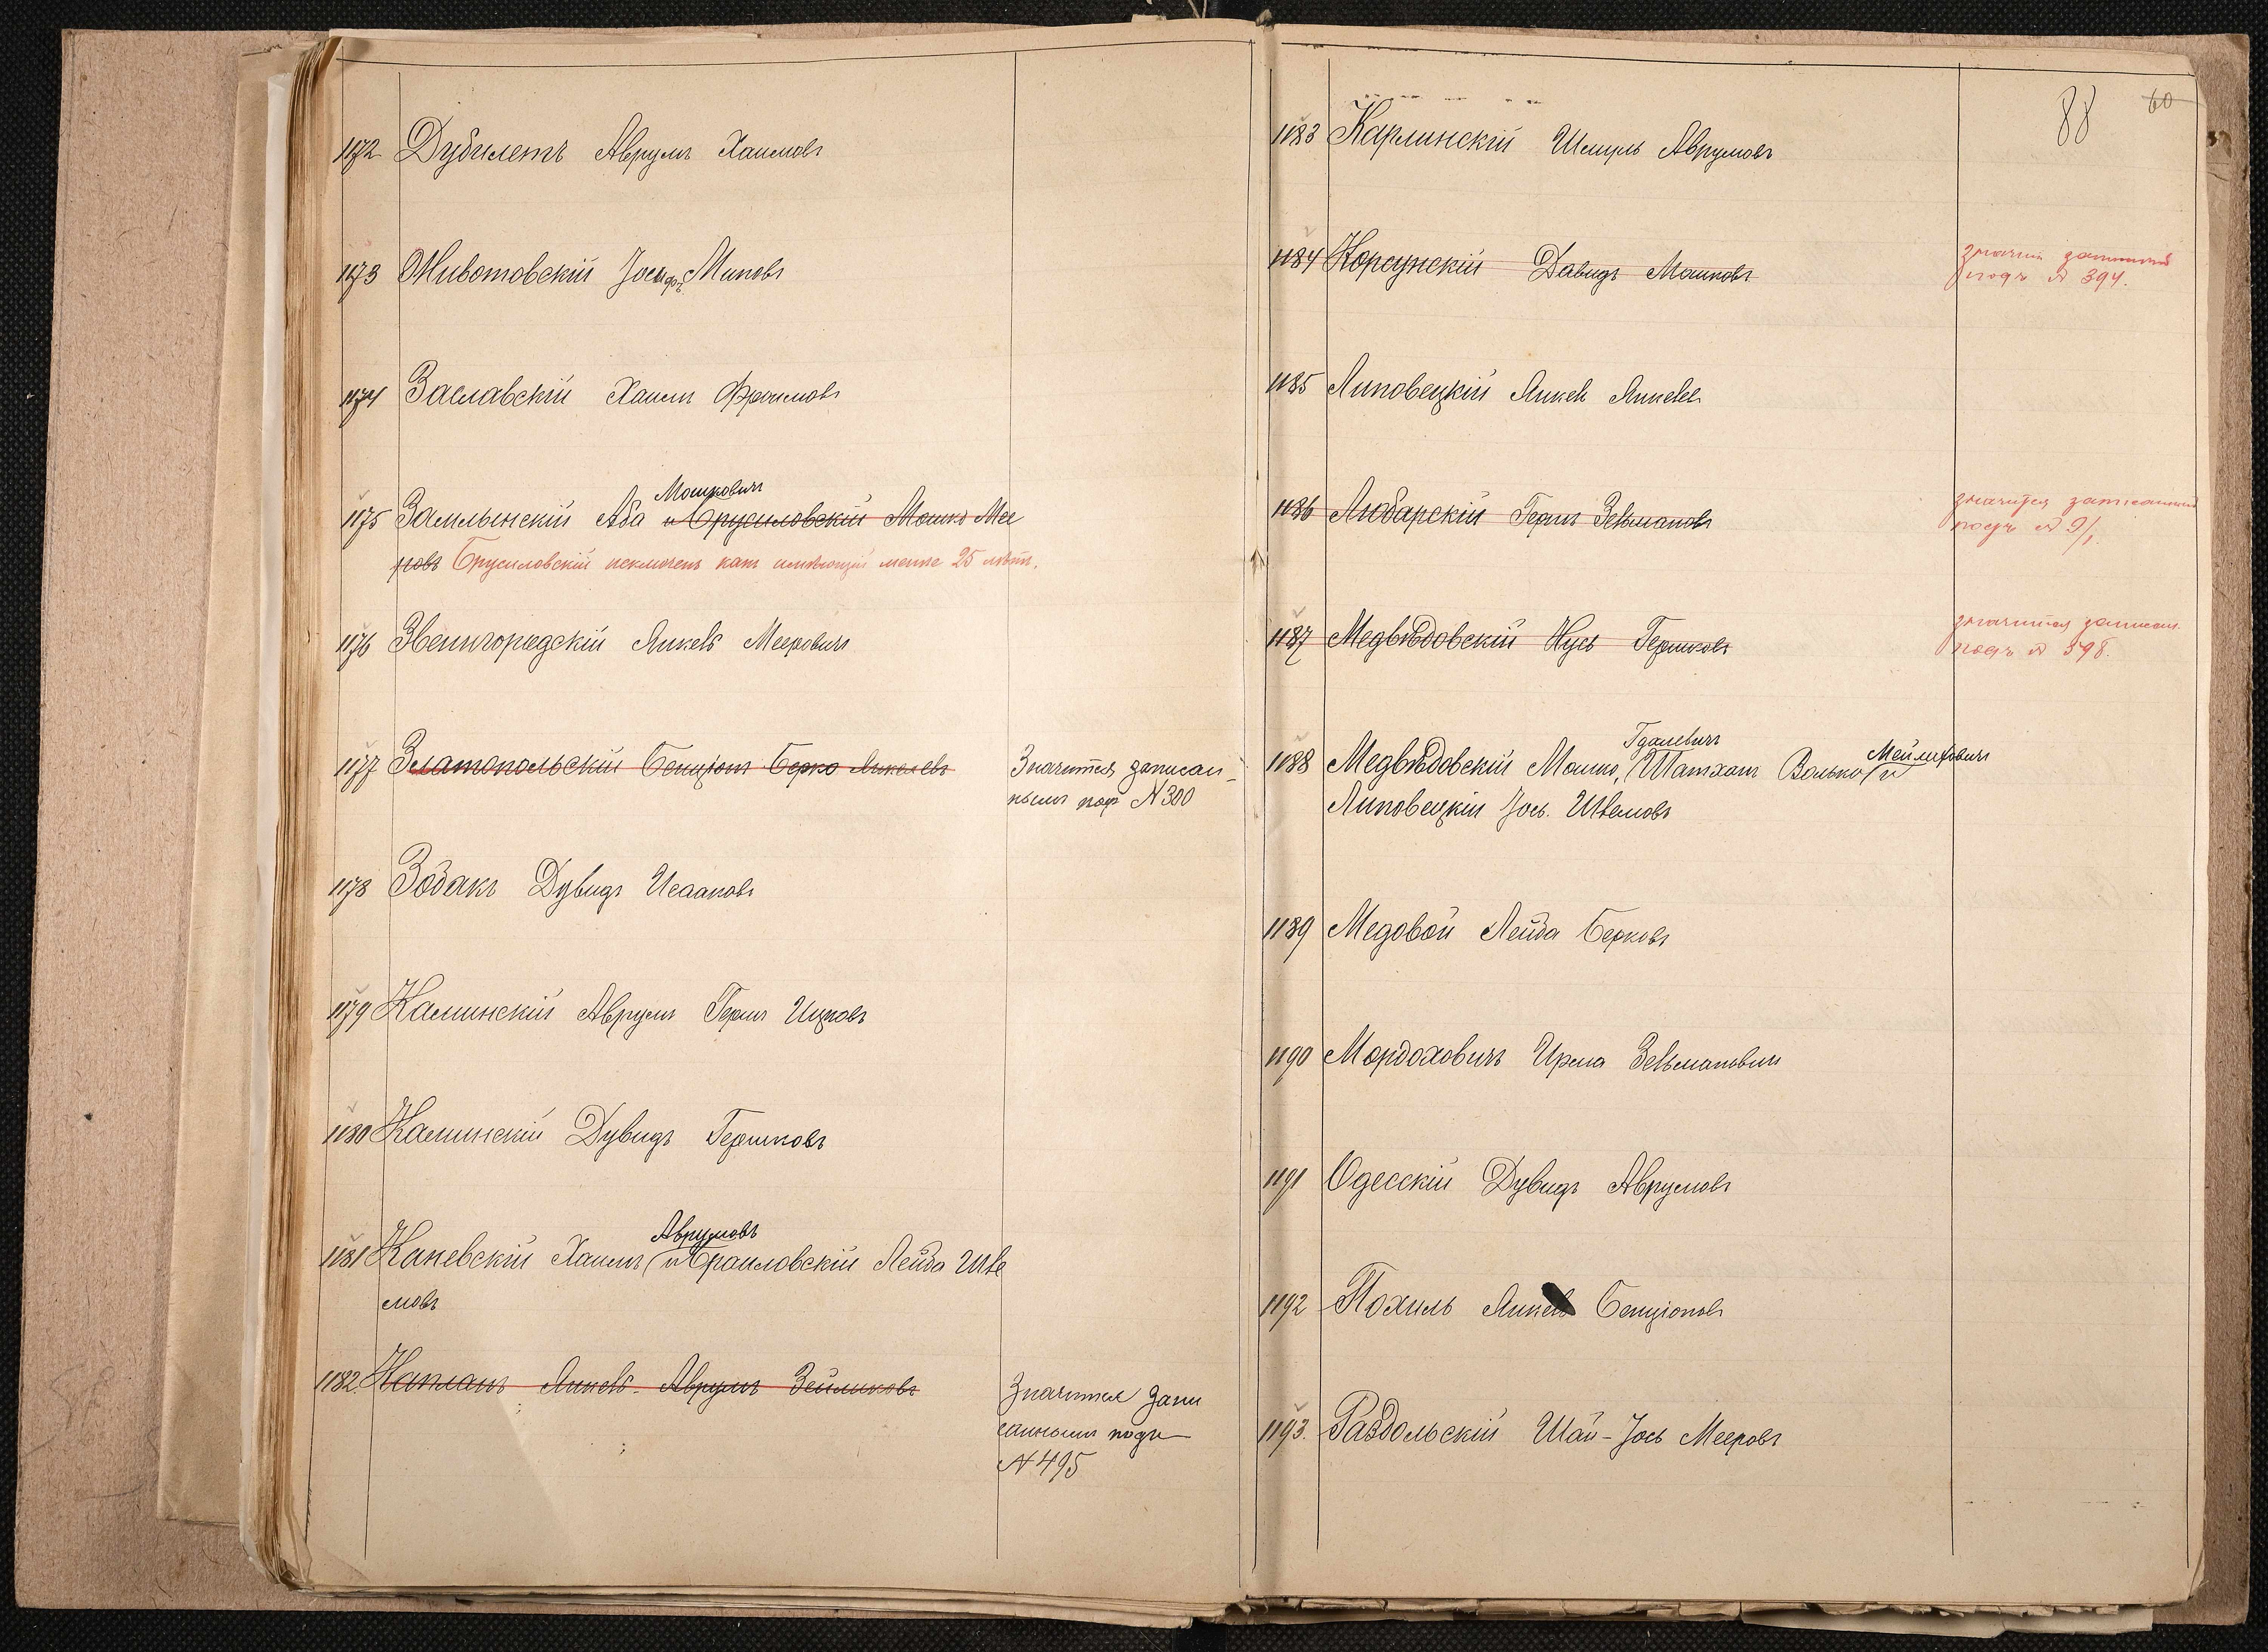 1172 Дубилетъ Аврумъ Хаимовъ
1173 Животовскій Іосифъ Миновъ
1174 Заславскій Хаимъ Фроимовъ
Мошковичъ
1175 Замлынскій Аба и Брусиловскій Мошко Мее
ровъ Брусиловскій исключенъ какъ имѣющій менѣе 25 лѣтъ.
1176 Звенигородскій Янкель Мееровичъ
1177 Златопольскій Бенціонъ Берко Янкелевъ
Значится записан-
нымъ подъ N 300
1178 Зобакъ Дувидъ Исааковъ
1179 Каминскій Аврумъ Гершъ Ицковъ
1180 Каминскій Дувидъ Гершковъ
Аврумовъ
1181 Каневскій Хаимъ и Браиловскій Лейба Шле
мовъ
1182 Капланъ Янкель-Аврумъ Зейликовъ
Значится запи
саннымъ подъ
N 495
88 60
1183 Карлинскій Шмуль Аврумовъ
1184 Корсунскій Давидъ Мошковъ
подъ N 394.
1185 Липовецкій Янкель Янкелев
1186 Любарскій Гершъ Зельмановъ
значится записанный
подъ N
1187 Медвѣдовскій Нусь Гершковъ
значится записан
подъ N 598.
Гдалевичъ
Мейлиховичъ
1188 Медвѣдовскій Мошко, Шатхатъ Волько и
Липовецкій Іось Шлемовъ
1189 Медовой Лейба Берковъ
1190 Мордоховичъ Ирма Зельмановичъ
1191 Одесскій Дувидъ Аврумовъ
1192 Похиль Янкель Бенціоновъ
1193. Раздольскій Шай-Іось Мееровъ